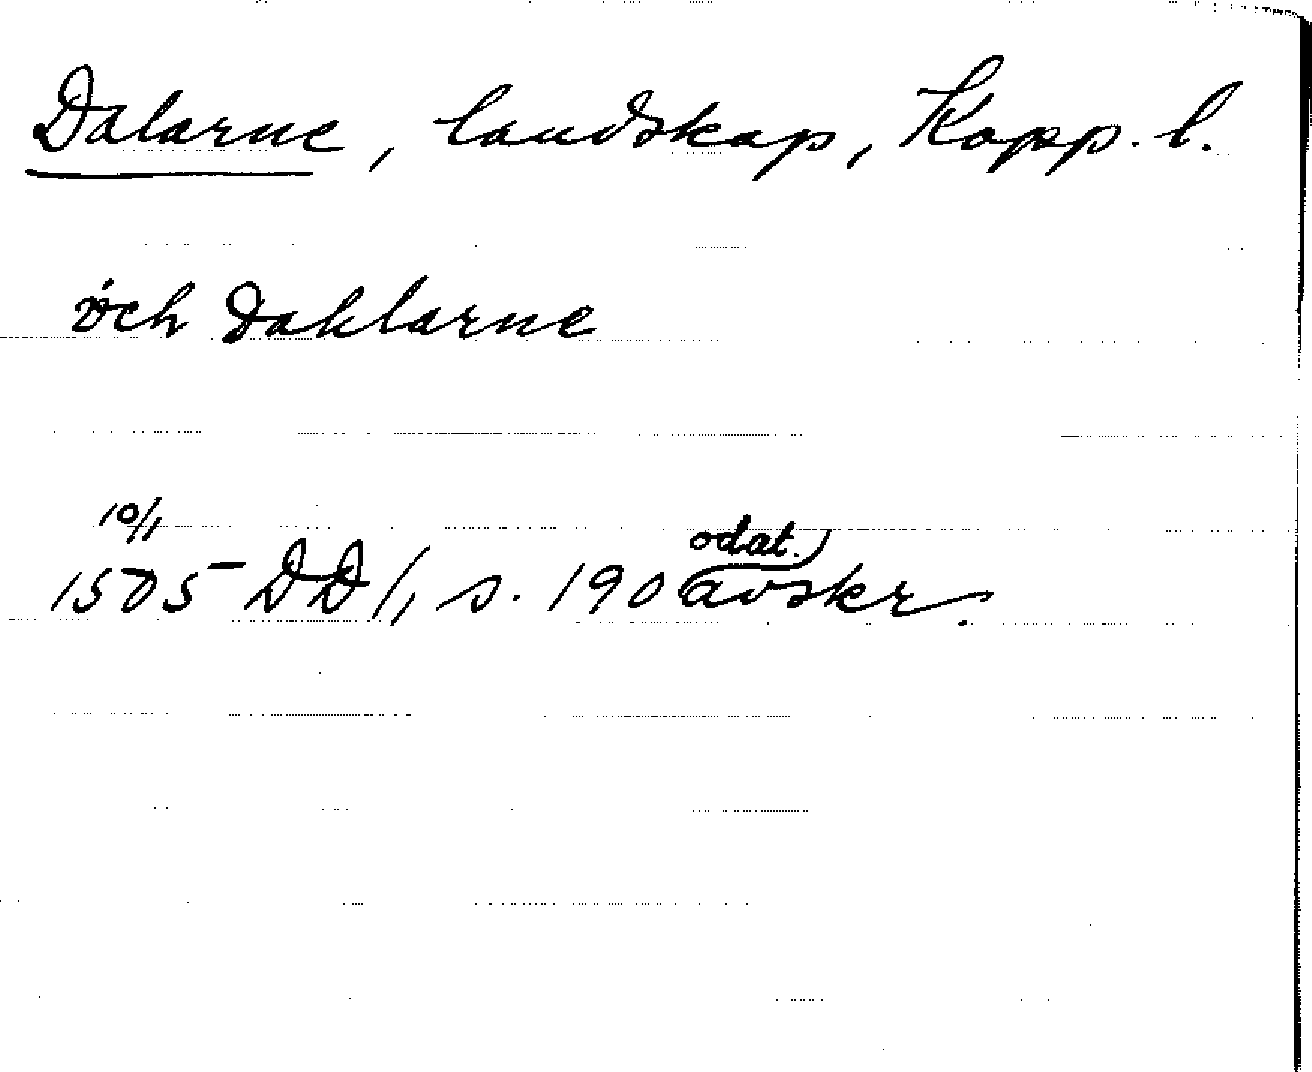 Dalarne, landskap, Kopp. l.
öch Dahlarne
10/1
1505 DD/1 s. 190 odat. avskr.